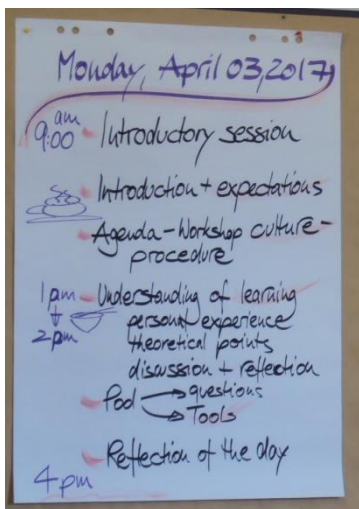 Monday, April 03, 2017
9:00 am Introductory session
Introduction + expectations
Agenda - Workshop culture -
procedure
1 pm Understanding of learning
personal experience
2 pm theoretical points
discussion + reflection
Pool → questions
→ Tools
Reflection of the day
4 pm